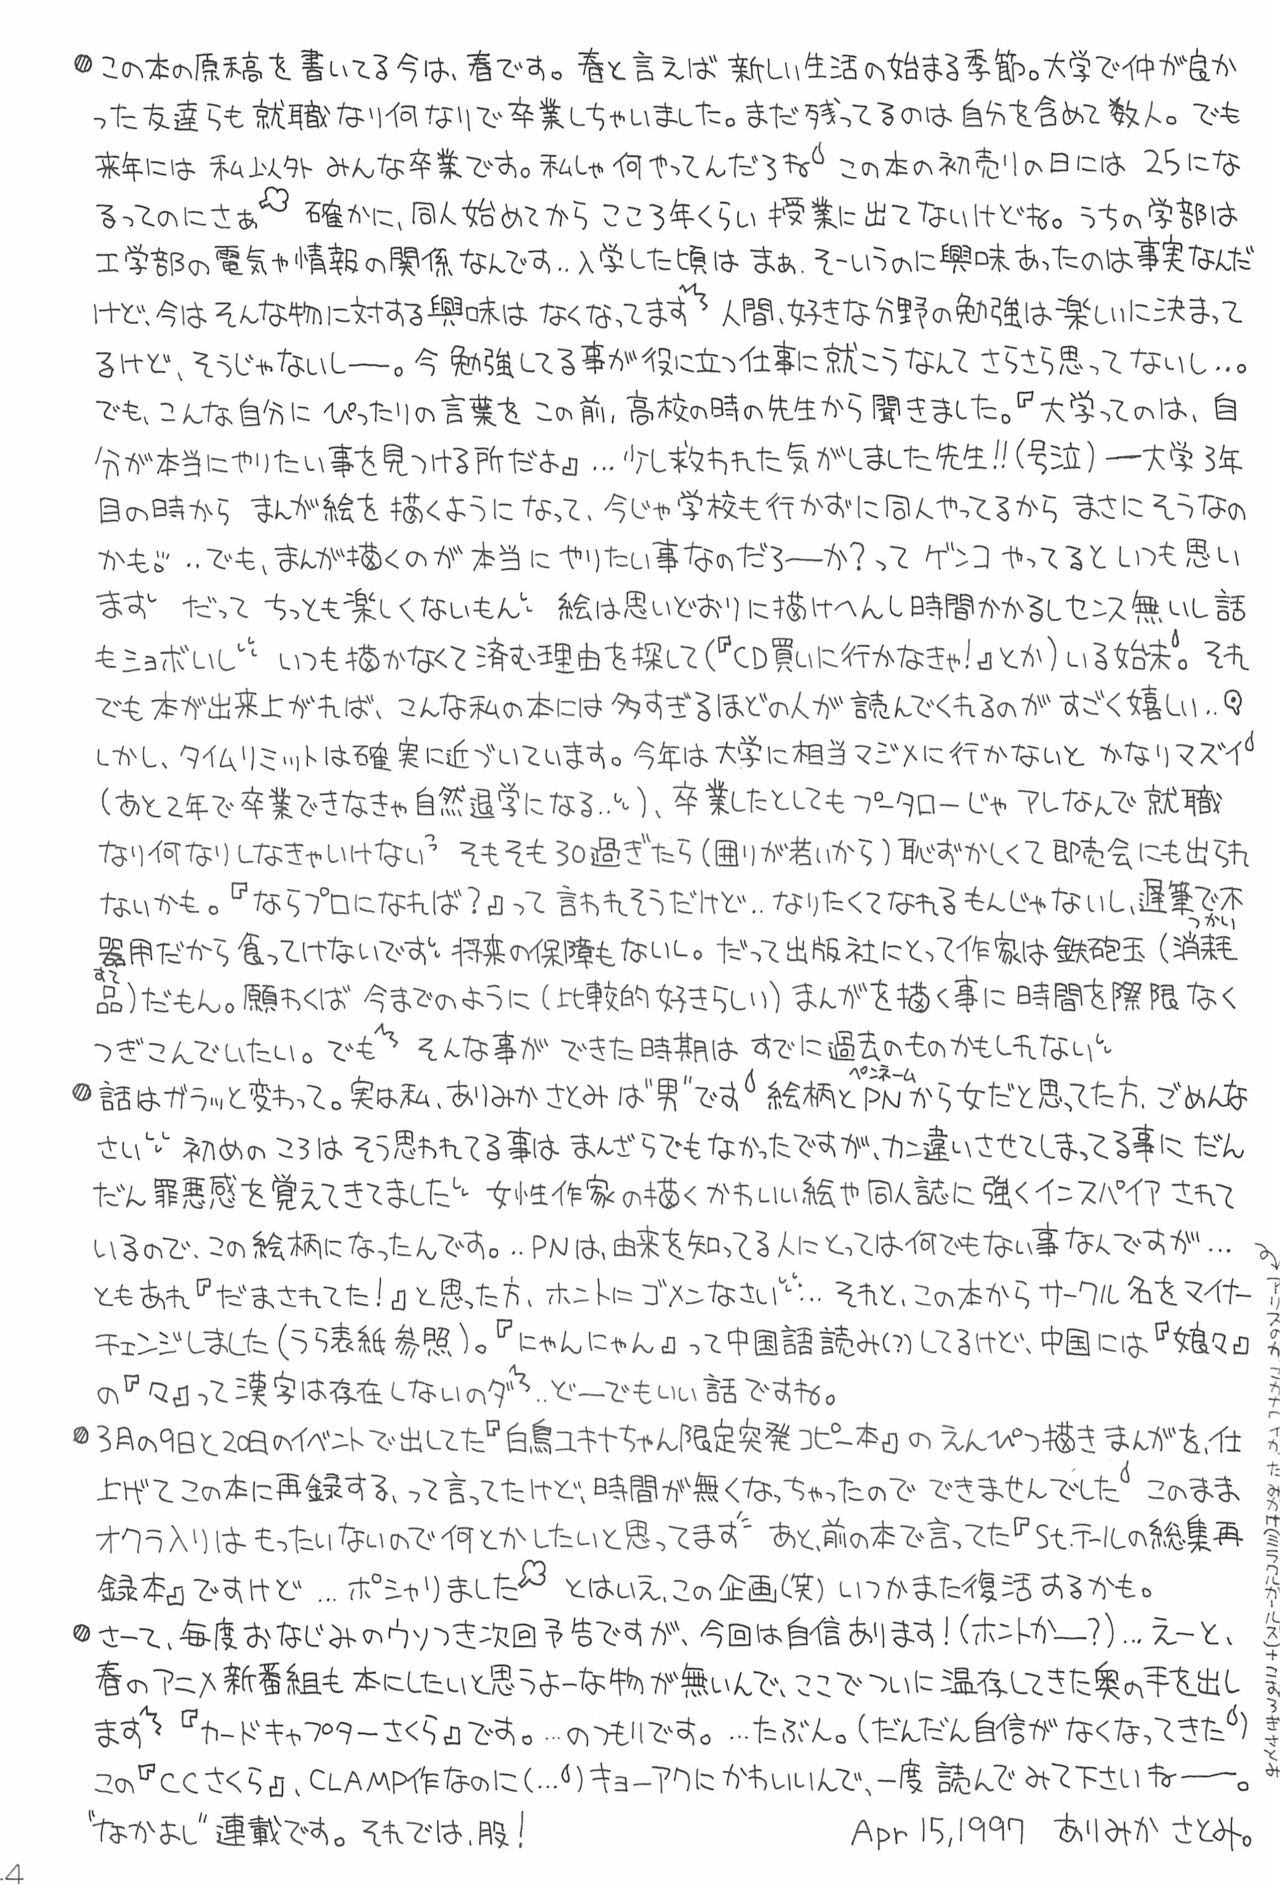 この本の原稿を書いてる今は、春です。春と言えば新しい生活の始まる季節。大学で仲が良か
った友達らも就職なり何なりで卒業しちゃいました。まだ残ってるのは自分を含めて数人。でも
来年には私以外みんな卒業です。私しゃ何やってんだろね この本の初売りの日には25にな
るってのにさぁ 確かに、同人始めてからここ3年くらい授業に出てないけどね。うちの学部は
工学部の電気や情報の関係なんです‥入学した頃はまぁ、そーいうのに興味あったのは事実なんだ
けど、今はそんな物に対する興味はなくなってます 人間、好きな分野の勉強は楽しいに決まって
るけど、そうじゃないしー。今勉強してる事が役に立つ仕事に就こうなんてさらさら思ってないし…。
でも、こんな自分にぴったりの言葉をこの前、高校の時の先生から聞きました。『大学ってのは、自
分が本当にやりたい事を見つける所だよ』…少し救われた気がしました先生!!(号泣)ー大学3年
目の時からまんが絵を描くようになって、今じゃ学校も行かずに同人やってるからまさにそうなの
かも ‥でも、まんが描くのが本当にやりたい事なのだろーか?ってゲンコやってるといつも思い
ます だってちっとも楽しくないもん 絵は思いどおりに描けへんし時間かかるしセンス無いし話
もショボいし いつも描かなくて済む理由を探して(『CD買いに行かなきゃ!』とか)いる始末。それ
でも本が出来上がれば、こんな私の本には多すぎるほどの人が読んでくれるのがすごく嬉しい‥
しかし、タイムリミットは確実に近づいています。今年は大学に相当マジメに行かないとかなりマズイ
(あと2年で卒業できなきゃ自然退学になる‥)、卒業したとしてもプータローじゃアレなんで就職
なり何なりしなきゃいけない そもそも30過ぎたら(囲りが若いから)恥ずかしくて即売会にも出られ
ないかも。『ならプロになれば?』って言われそうだけど‥なりたくてなれるもんじゃないし、遅筆で不
器用だから食ってけないです 将来の保障もないし。だって出版社にとって作家は鉄砲玉(消耗
つかい
品)だもん。願わくば今までのように(比較的好きらしい)まんがを描く事に時間を際限なく
すて
つぎこんでいたい。でも そんな事ができた時期はすでに過去のものかもしれない
話はガラッと変わって。実は私、ありみかさとみは"男"です 絵柄とPNから女だと思ってた方、ごめんな
ペンネーム
さい 初めのころはそう思われてる事はまんざらでもなかったですが、カン違いさせてしまってる事にだん
だん罪悪感を覚えてきてました 女性作家の描くかわいい絵や同人誌に強くインスパイアされて
いるので、この絵柄になったんです。‥PNは、由来を知ってる人にとっては何でもない事なんですが…
ともあれ『だまされてた!』と思った方、ホントにゴメンなさい… それと、この本からサークル名をマイナー
チェンジしました(うら表紙参照)。『にゃんにゃん』って中国語読み(?)してるけど、中国には『娘々』
の『々』って漢字は存在しないのダ‥どーでもいい話ですね。
3月の9日と20日のイベントで出してた『白鳥ユキナちゃん限定突発コピー本』のえんぴつ描きまんがを、仕
上げてこの本に再録する、って言ってたけど、時間が無くなっちゃったのでできませんでした このまま
オクラ入りはもったいないので何とかしたいと思ってます あと、前の本で言ってた『St.テールの総集再
録本』ですけど…ポシャりました とはいえ、この企画(笑)いつかまた復活するかも。
さーて、毎度おなじみのウソつき次回予告ですが、今回は自信あります!(ホントかー?)…えーと、
春のアニメ新番組も本にしたいと思うよーな物が無いんで、ここでついに温存してきた奥の手を出し
ます 『カードキャプターさくら』です。…のつもりです。…たぶん。(だんだん自信がなくなってきた)
この『CCさくら』、CLAMP作なのに(…)キョーアクにかわいいんで、一度読んでみて下さいねー。
"なかよし"連載です。それでは、股!
Apr 15,1997 ありみかさとみ。
みかげ(ミラクルガールズ)+こおろぎさとみ
44